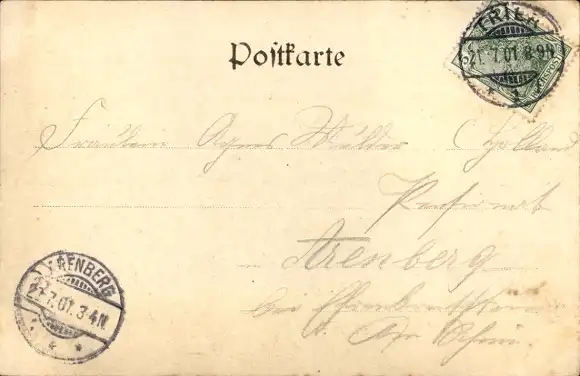 Postkarte
TRIER
21.7.01.8-9N
* 1 *
Fräulein Agnes Mülder Holland
Pensionat
Arenberg
bei Ehrenbreitstein
a. Rhein.
ARENBERG
22.7.01.3-4N
* * *